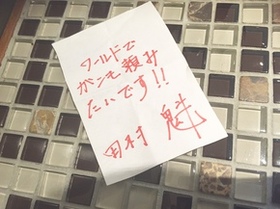 ワールドで
ガンも頼み
たいです!!
田村 魁斗